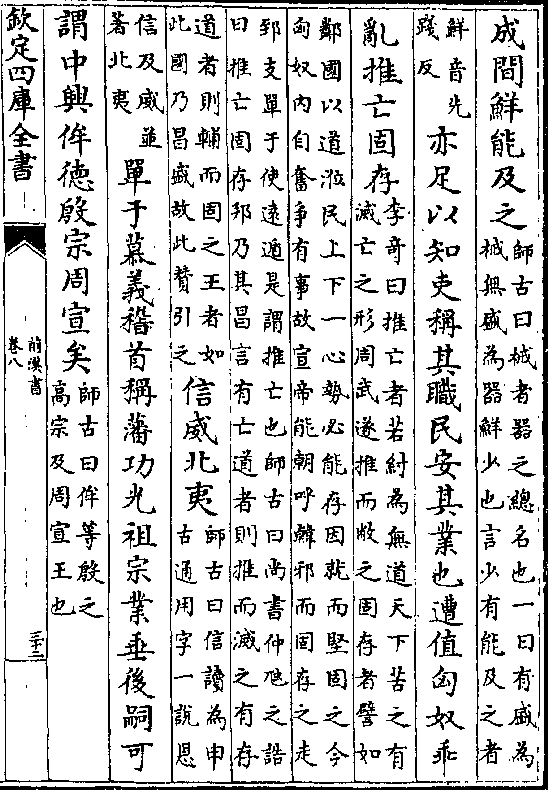 成間鮮能及之師古曰械者器之總名也一曰有盛為
械無盛為器鮮少也言少有能及之者
鮮音先
踐反亦足以知吏稱其職民安其業也遭值匈奴乖
亂推亡固存李奇曰推亡者若紂為無道天下苦之有
滅亡之形周武遂推而敝之固存者譬如
鄰國以道涖民上下一心勢必能存因就而堅固之今
匈奴內自奮爭有事故宣帝能朝呼韓邪而固存之走
郅支單于使遠遁是謂推亡也師古曰尚書仲虺之誥
曰推亡固存邦乃其昌言有亡道者則推而滅之有存
道者則輔而固之王者如
此國乃昌盛故此贊引之信威北夷師古曰信讀為申
古通用字一說恩
信及威並
著北夷單于慕義稽首稱藩功光祖宗業垂後嗣可
謂中興侔德殷宗周宣矣師古曰侔等殷之
高宗及周宣王也
欽定四庫全書
前漢書
卷八
三十二